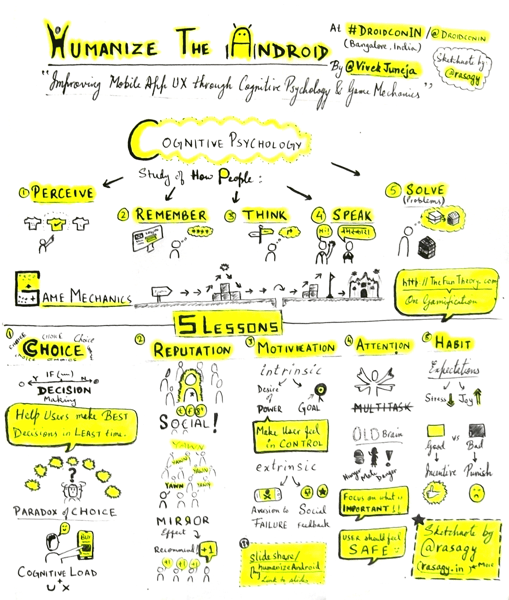 Humanize The Android
At #DroidconIN / @Droidconin
(Bangalore, India)
By @Vivek Juneja
Sketchnote by
@rasagy
"Improving Mobile App UX through Cognitive Psychology & Game Mechanics"
Cognitive Psychology
Study of How People:
① Perceive
② Remember
③ Think
④ Speak
⑤ Solve
(Problems)
Hi!
Game Mechanics
http://TheFunTheory.com
On Gamification
5 Lessons
① Choice
Choice
Choice
Choice
Y IF(—) N
Decision
Making
Help Users make BEST
Decisions in LEAST time.
?
Paradox of Choice
BUY
Cognitive Load
U + X
② Reputation
Social!
Yawn
Yawn
Yawn
Yawn
Mirror
Effect
Recommend! +1
③ Motiviation
intrinsic
Desire of
Power
Goal
Make User feel
in CONTROL
extrinsic
Aversion to
Failure
Social
Feedback
Slideshare/
humanizeAndroid
Link to slides
④ Attention
Multitask
OLD Brain
Hunger Mate Danger
Focus on what is
IMPORTANT!!
User should feel
SAFE
⑤ Habit
Expectations
Stress
Joy
Good vs Bad
Incentive
Punish
Sketchnote by
@rasagy
rasagy.in